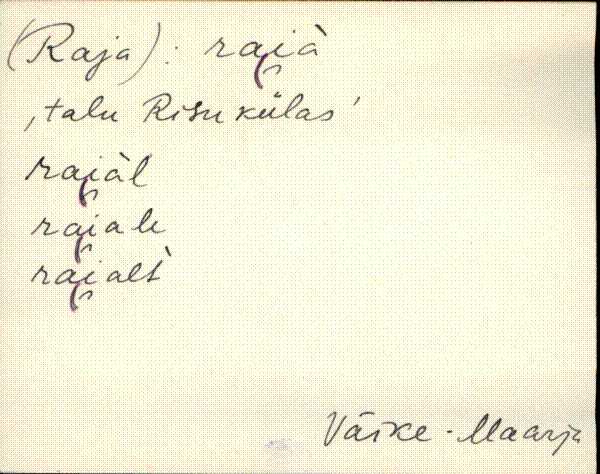 (Raja): rai̯à
‚talu Risu külas’
rai̯àl
rai̯ale
rai̯alt̀
Väike-Maarja